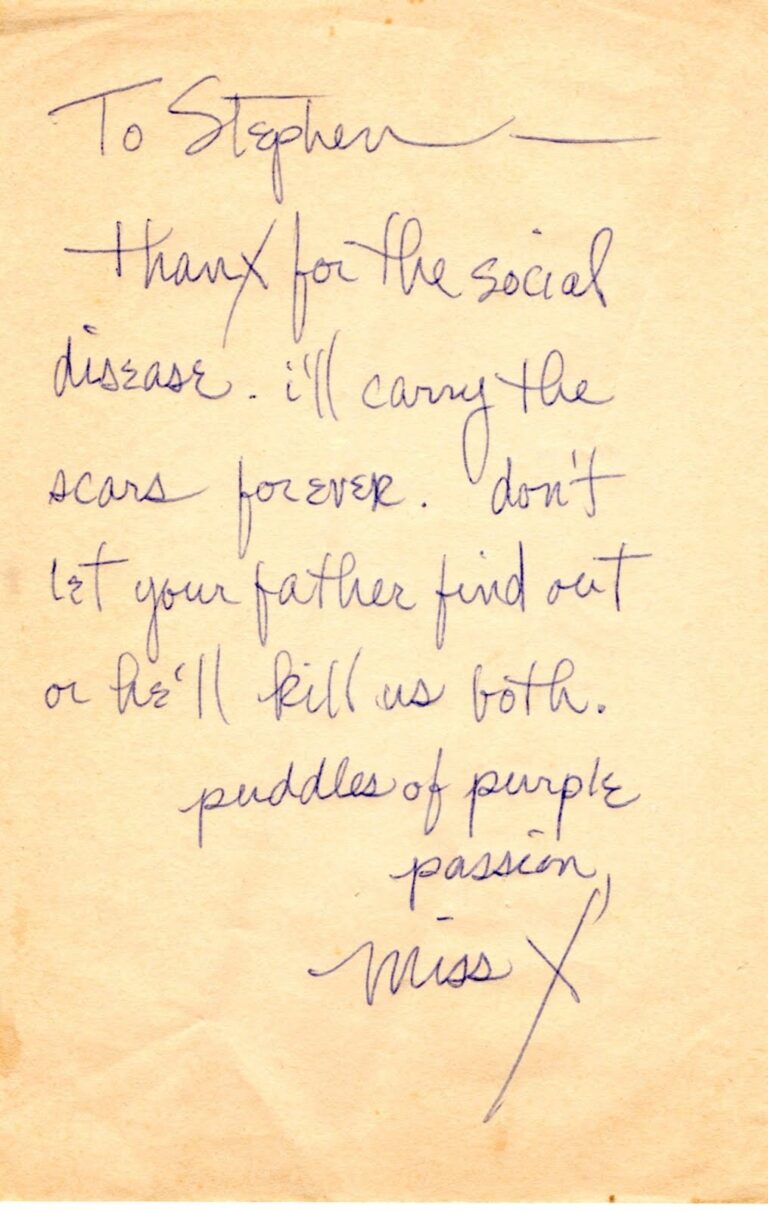 To Stephen —
thanx for the social
disease. i'll carry the
scars forever. don't
let your father find out
or he'll kill us both.
puddles of purple
passion,
Miss X